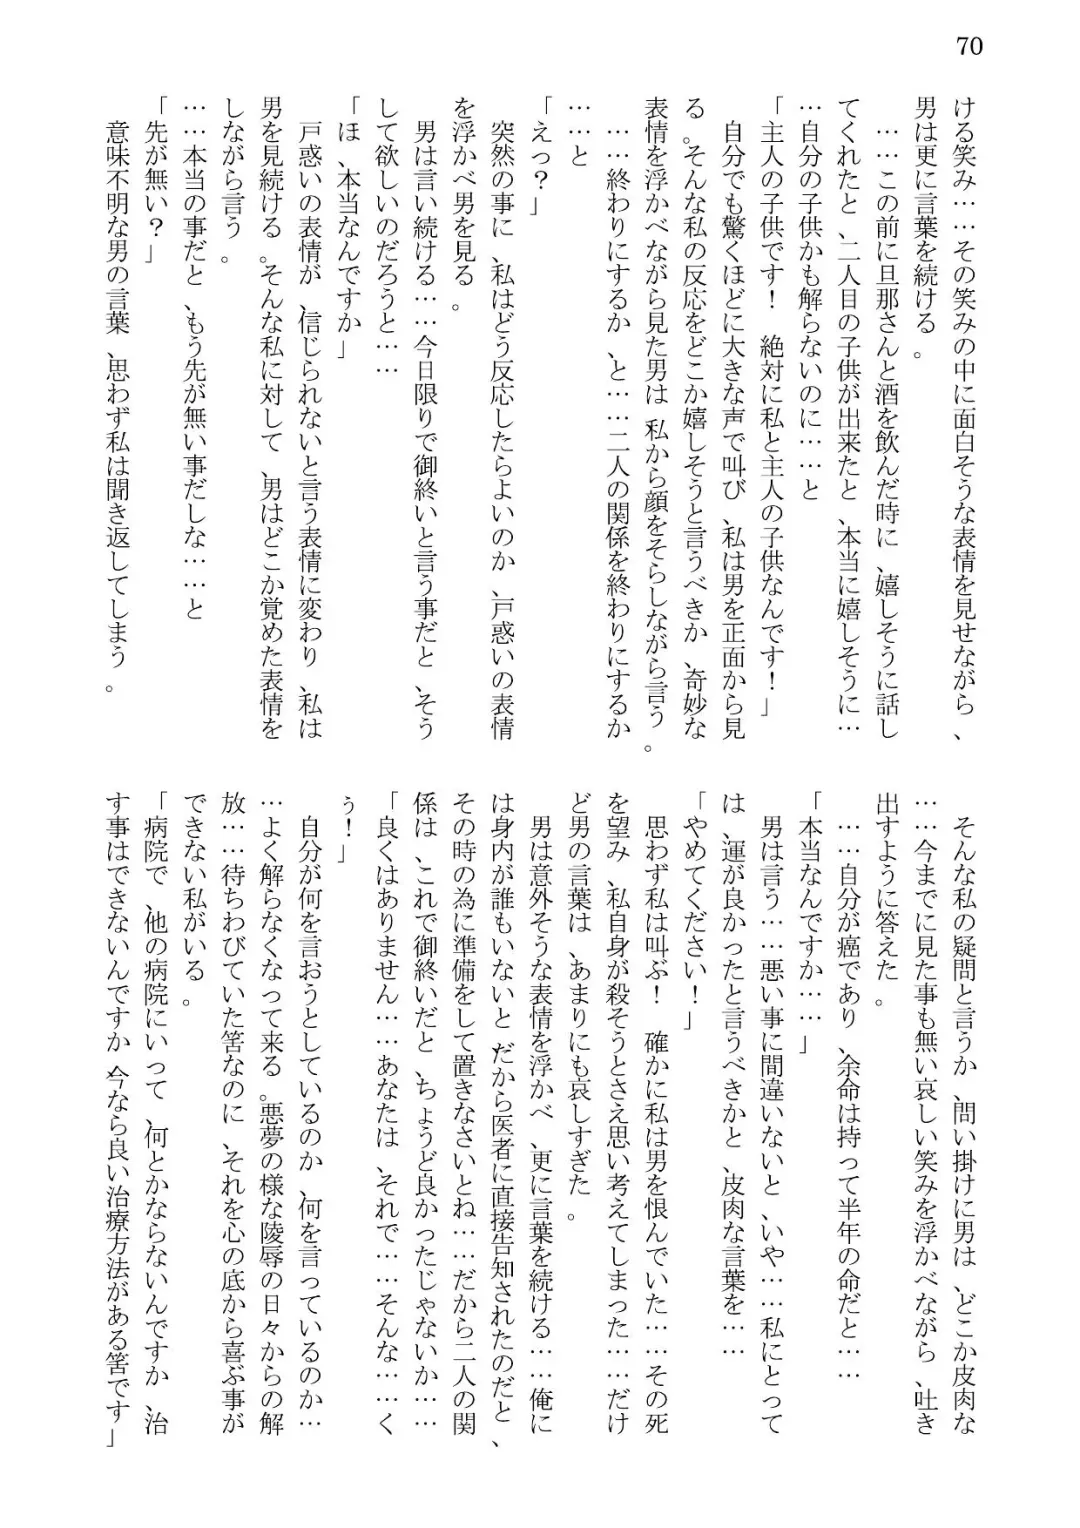 70
ける笑み……その笑みの中に面白そうな表情を見せながら、
男は更に言葉を続ける。
……この前に旦那さんと酒を飲んだ時に、嬉しそうに話し
てくれたと、二人目の子供が出来たと、本当に嬉しそうに…
…自分の子供かも解らないのに……と
「主人の子供です！　絶対に私と主人の子供なんです！」
自分でも驚くほどに大きな声で叫び、私は男を正面から見
る。そんな私の反応をどこか嬉しそうと言うべきか、奇妙な
表情を浮かべながら見た男は、私から顔をそらしながら言う。
……終わりにするか、と……二人の関係を終わりにするか
……と
「えっ？」
突然の事に、私はどう反応したらよいのか、戸惑いの表情
を浮かべ男を見る。
男は言い続ける……今日限りで御終いと言う事だと、そう
して欲しいのだろうと……
「ほ、本当なんですか」
戸惑いの表情が、信じられないと言う表情に変わり、私は
男を見続ける。そんな私に対して、男はどこか覚めた表情を
しながら言う。
……本当の事だと、もう先が無い事だしな……と
「先が無い？」
意味不明な男の言葉、思わず私は聞き返してしまう。
そんな私の疑問と言うか、問い掛けに男は、どこか皮肉な
……今までに見た事も無い哀しい笑みを浮かべながら、吐き
出すように答えた。
……自分が癌であり、余命は持って半年の命だと……
「本当なんですか……」
男は言う……悪い事に間違いないと、いや……私にとって
は、運が良かったと言うべきかと、皮肉な言葉を……
「やめてください！」
思わず私は叫ぶ！　確かに私は男を恨んでいた……その死
を望み、私自身が殺そうとさえ思い考えてしまった……だけ
ど男の言葉は、あまりにも哀しすぎた。
男は意外そうな表情を浮かべ、更に言葉を続ける……俺に
は身内が誰もいないと、だから医者に直接告知されたのだと、
その時の為に準備をして置きなさいとね……だから二人の関
係は、これで御終いだと、ちょうど良かったじゃないか……
「良くはありません……あなたは、それで……そんな……く
ぅ！」
自分が何を言おうとしているのか、何を言っているのか…
…よく解らなくなって来る。悪夢の様な陵辱の日々からの解
放……待ちわびていた筈なのに、それを心の底から喜ぶ事が
できない私がいる。
「病院で、他の病院にいって、何とかならないんですか、治
す事はできないんですか、今なら良い治療方法がある筈です」